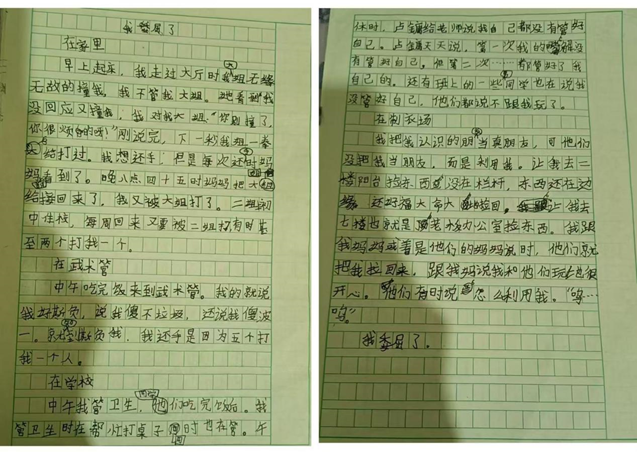 我委屈了
在家里
早上起床，我走过大厅时我大姐无缘
无故的撞我，我不管我大姐。她看到我
没回应又撞我，我对我大姐：“你别撞了，
你很烦的呀！”刚说完，下一秒我姐一拳
给打过。我想还手，但是每次还时妈
妈看到了。晚八点四十五时妈妈把大
给接回来了，我又被大姐打了。二姐初
中住校，每周回来又要被二姐打有时甚
至两个打我一个。
在武术管
中午吃完饭来到武术管。我的就说
我好欺负，说我傻不垃圾，还说我傻波
一。欺负我，我还手是因为五个打
我一个人。
在学校
中午我管卫生，他们吃完饭后。我
管卫生时在帮忙打桌子同时也在管。午
休时，给老师说我自己都没有管好
自己。天天说，管一次我的
有管好自己。但第二次……都管好了我
自己的。还有班上的一些同学也在说我
没管好自己，他们都说不跟我玩了。
在制衣场
我把我认识的朋当真朋友，可他们
没把我当朋友，而是利用我。让我去二
楼阳台捡东西没在栏杆，东西还在边
还好福大命大捡回。让我去
七楼也就是顶老板办公室捡东西。我跟
我妈妈或着是他们的妈妈说时，他们就
把我拉回来，跟我妈说我和他们玩也很
开心。他们有时说怎么利用我。“呜…
呜”
我委屈了。